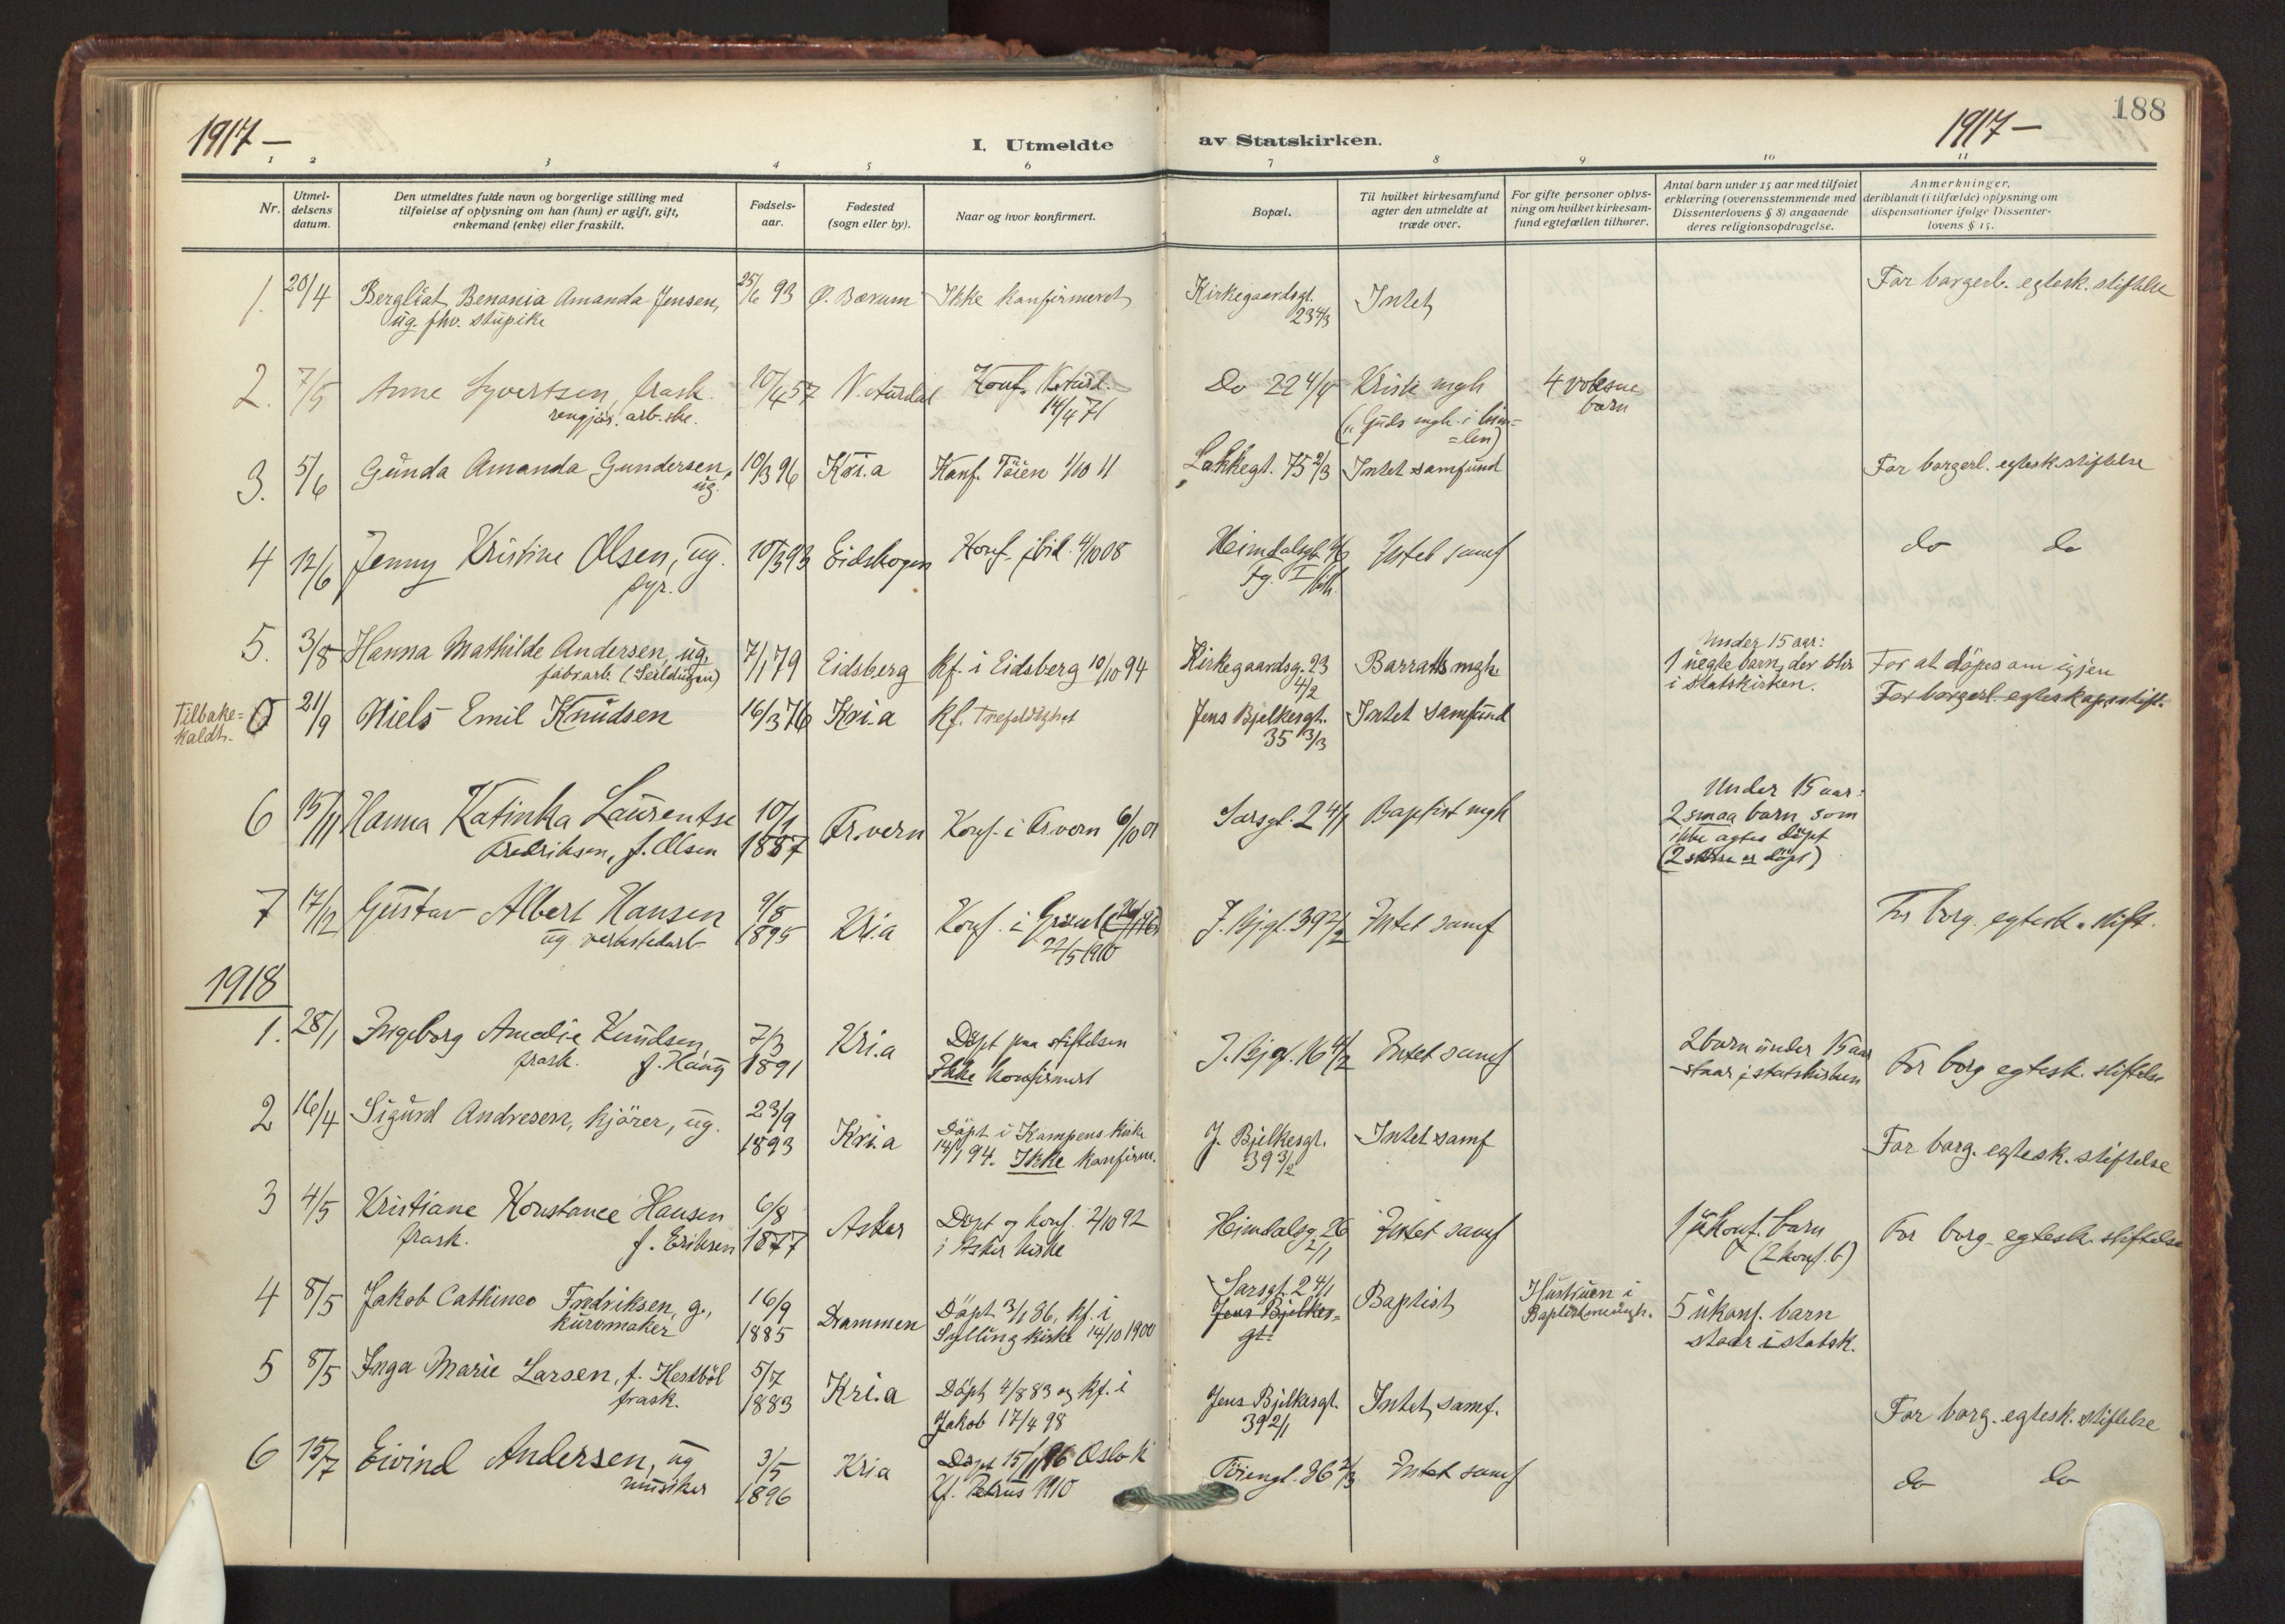 188
1917 —
1917 —
I. Utmeldte av Statskirken.
1 2 3 4 5 6 7 8 9 10 11
Nr.
Utmel-
delsens
datum.
Den utmeldtes fulde navn og borgerlige stilling med
tilføielse af oplysning om han (hun) er ugift, gift,
enkemand (enke) eller fraskilt.
Fødsels-
aar.
Fødested
(sogn eller by).
Naar og hvor konfirmert.
Bopæl.
Til hvilket kirkesamfund
agter den utmeldte at
træde over.
For gifte personer oplys-
ning om hvilket kirkesam-
fund egtefællen tilhører.
Antal barn under 15 aar med tilføiet
erklæring (overensstemmende med
Dissenterlovens § 8) angaaende
deres religionsopdragelse.
Anmerkninger,
deriblandt (i tilfælde) oplysning om
dispensationer ifølge Dissenter-
lovens § 15.
1. 20/4 Bergliot Benonia Amanda Jensen, 25/6 93 Ø. Bærum Ikke konfirmeret Kirkegaardsgt. Intet For borgerl. egtesk. stiftelse
ug. fhv. stupike 23 4/3
2. 7/5 Anne Syvertsen, frask. 10/4 57 N. Aurdal Konf. N. Aurd. Do 22 4/4 Kristi mgh 4 voksne
rengjør. arb.ske. 14/4 71 (Guds mgh. i him- barn
=len)
3. 5/6 Gunda Amanda Gundersen, 10/3 96 Kri.a Konf. Töien 1/10 11 Lakkegt. 75 2/3 Intet samfund For borgerl. egtesk. stiftelse
ug.
4 12/6 Jenny Kristine Olsen, ug. 10/3 93 Eidskogen Konf. ibid. 4/10 08 Heimdalsgt. Intet samf do do
syr.
5. 3/8 Hanna Mathilde Andersen, ug. 7/1 79 Eidsberg Kf. i Eidsberg 10/10 94 Kirkegaardsg. 23 Barratts mgh. Under 15 aar:
fabr.arb. (Seildugen) 4/2 1 uegte barn, der blir For at döpes om igjen
i statskirken.
Tilbake-
kaldt. 0 21/9 Niels Emil Knudsen 16/3 76 Kri.a Kf. Trefoldighet Jens Bjelkesgt. Intet samfund For borgerl. egteskapsstift.
35 3/3
6 15/11 Hanna Katinka Laurentse 10/1 Tr.vern Konf. i Tr.vern 6/10 01 Sarsgt. 2 4/1 Baptist mgh Under 15 aar:
Fredriksen, f. Olsen 1887 2 smaa barn som
ikke agtes döpt
7 17/12 Gustav Albert Hansen 9/8 Kri.a Konf. i J. Bj.gt. 39 2/2 Intet samf For borg. egtesk. stift.
ug. verkstedarb. 1895 22/5 1910
1918
1. 28/1 Ingeborg Amalie Knudsen, 7/3 Kri.a Döpt paa stiftelsen J. Bj.gt. 16 4/2 Intet samf 2 barn under 15 aar For borg egtesk. stiftelse
frask. f. Haug 1891 Ikke konfirmert staar i statskirken
2 16/4 Sigurd Andresen, kjörer, ug. 23/9 Kri.a Döpt i Kampens kirke J. Bjelkesgt. Intet samf For borg. egtesk. stiftelse
1893 14/1 94. Ikke konfirm. 39 3/2
3 4/5 Kristiane Konstance Hansen 6/8 Asker Döpt og konf. 2/10 92 Heimdalsg. 26 Intet samf 1 ukonf. barn For borg. egtesk. stiftelse
frask. f. Eriksen 1877 i Asker kirke 2/1 (2 konf. b)
4 8/5 Jakob Cathinco Fredriksen, g., 16/9 Drammen Döpt 3/1 86, kf. i Sarsgt. 2 4/1 Baptist Hustruen i 5 ukonf. barn
kurvmaker 1885 Sylling kirke 14/10 1900 Jens Bjelkes- Baptistmenigh. staar i statsk.
gt.
5 8/5 Inga Marie Larsen, f. Kestböl 5/7 Kri.a Döpt 4/8 83 og kf. i Jens Bjelkesgt. Intet samf. For borg. egtesk. stiftelse
frask. 1883 Jakob 17/4 98 39 2/1
6 15/7 Eivind Andersen, ug 3/5 Kria Döpt 15/11 96 Oslo k Töiengt. 36 2/3 Intet samf do do
musiker 1896 Kf. Petrus 1910